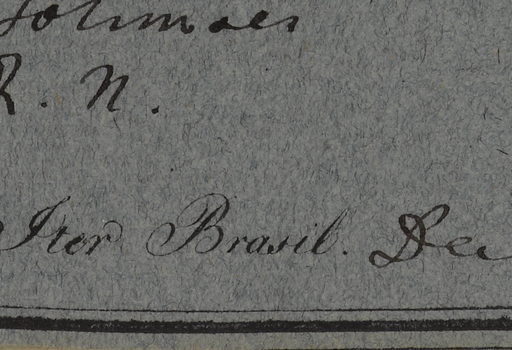 Solimoes
R. N.
Iter Brasil. De